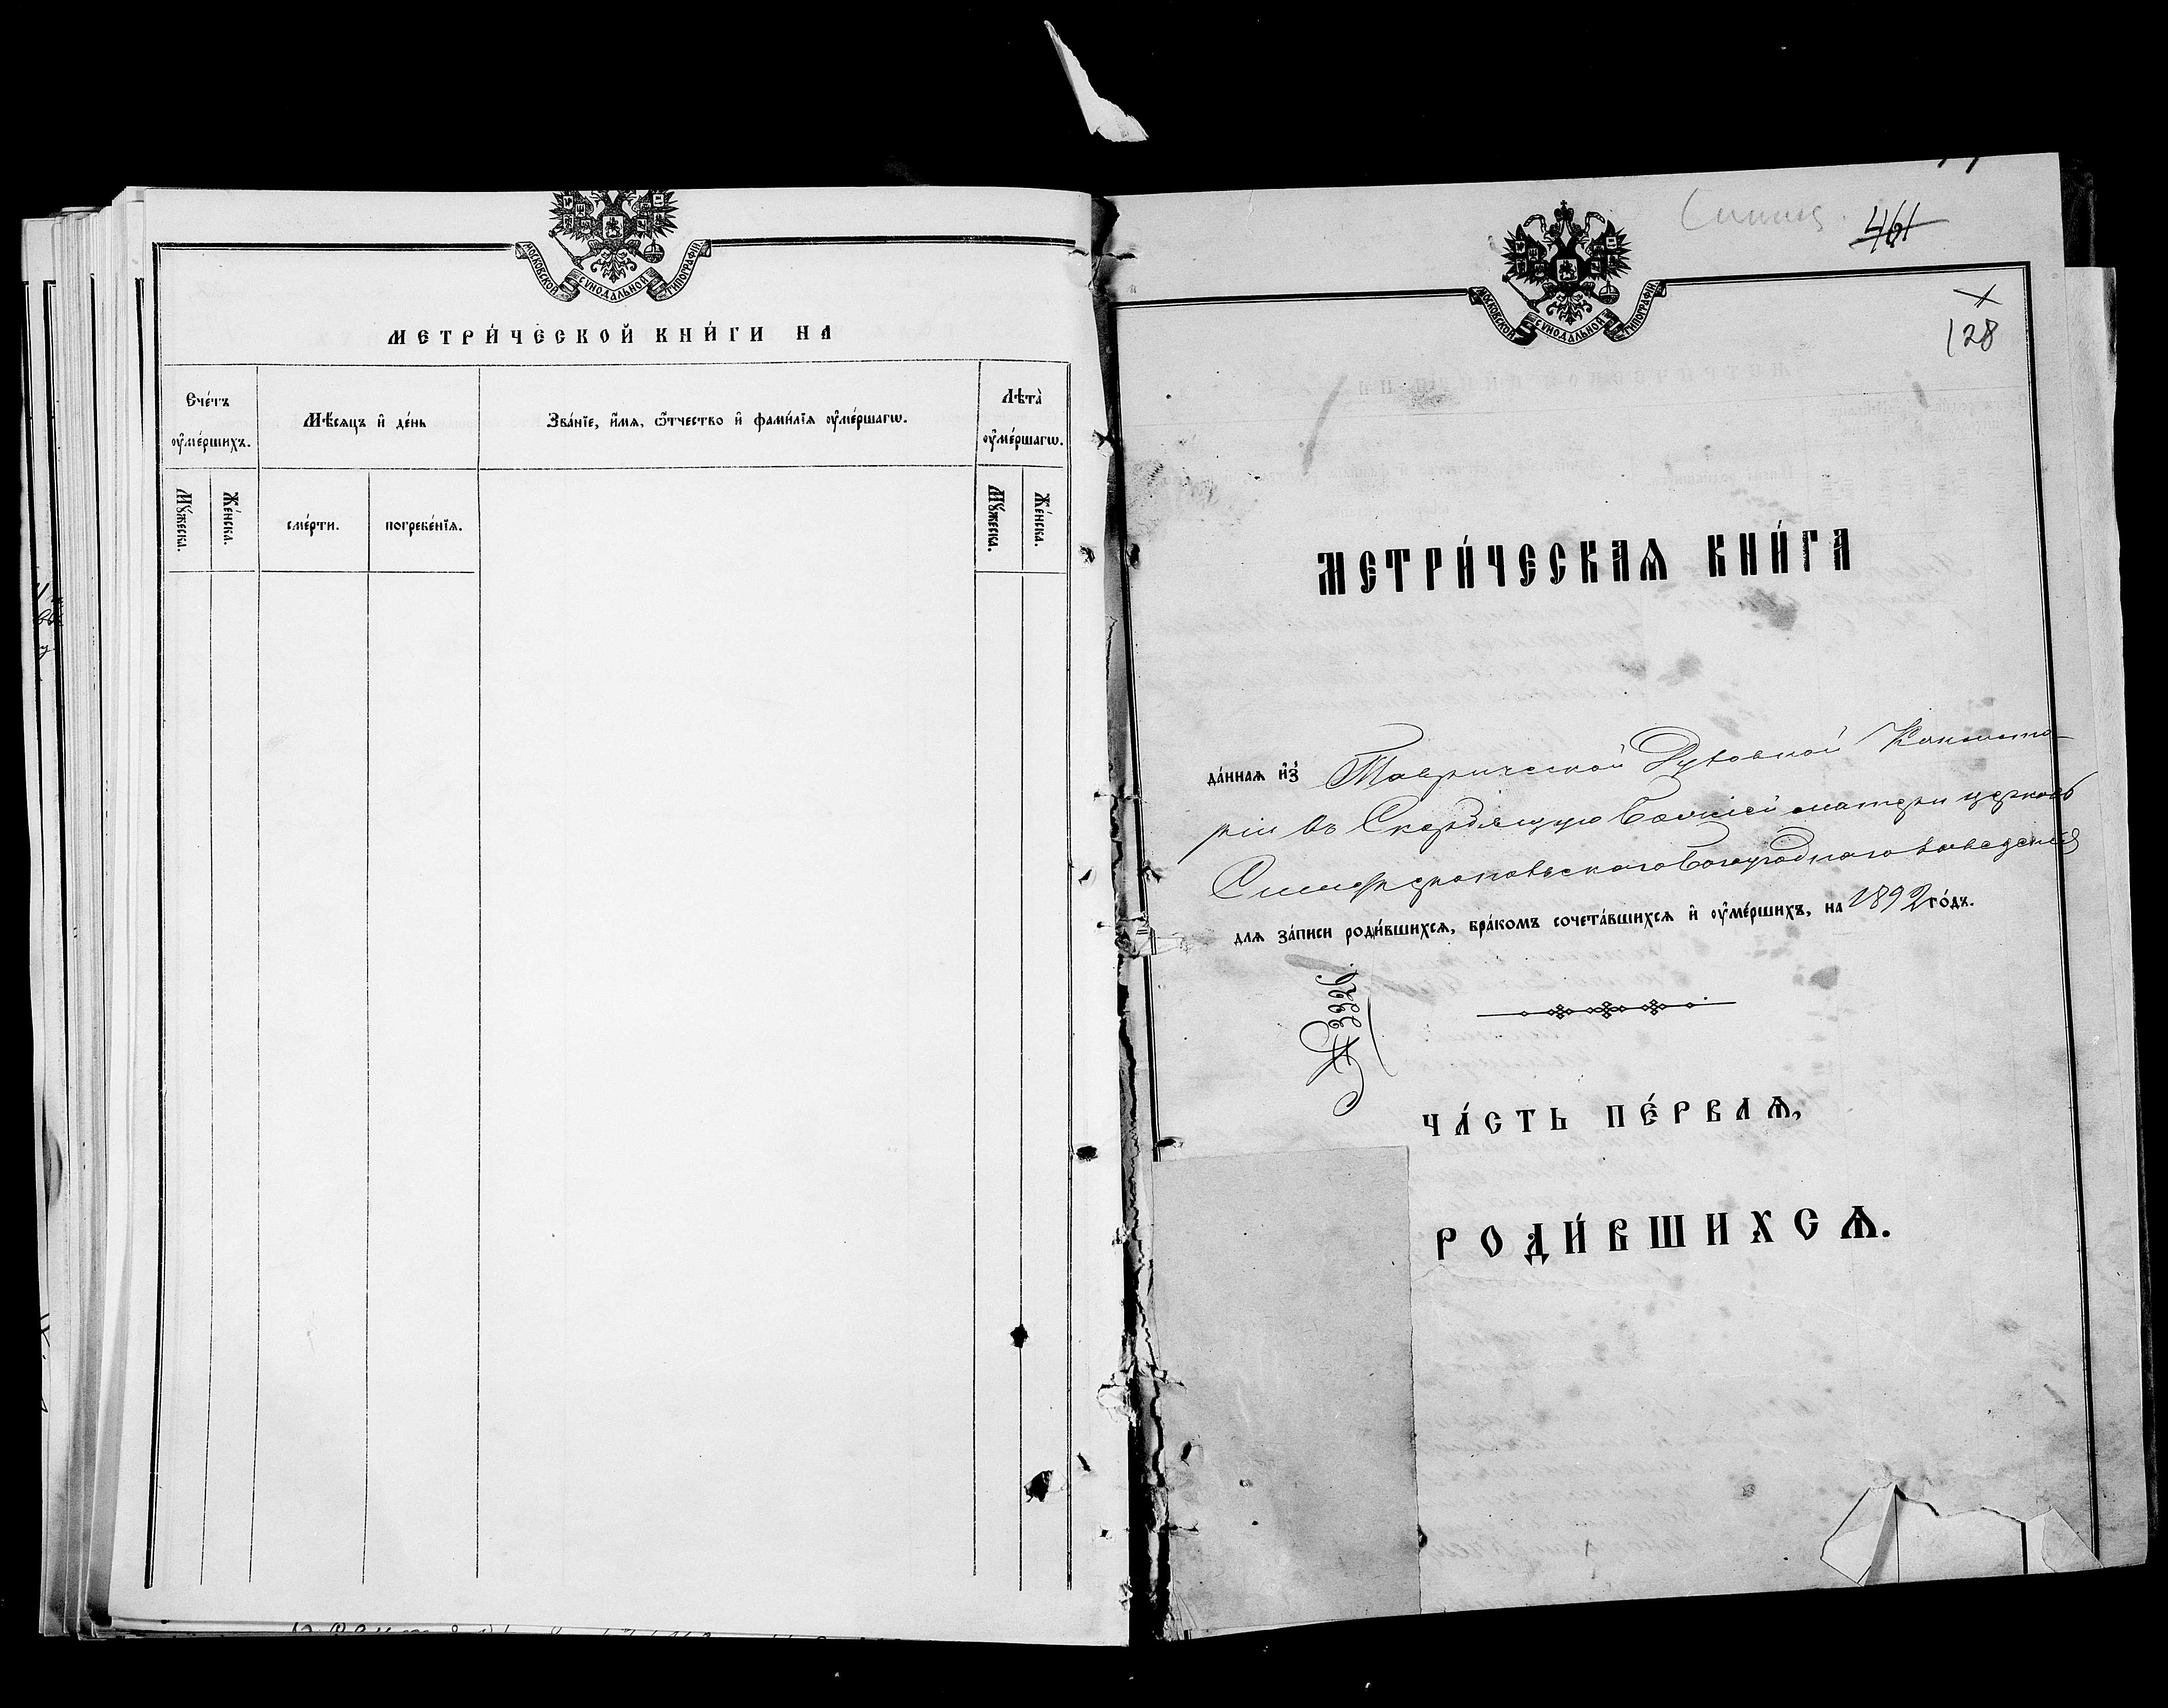 МОСКОВСКОЙ СѴНОДАЛЬНОЙ ТИПОГРАФІИ
МЕТРИ́ЧЕСКОЙ КНИ́ГИ НА
Счétъ ᲂу҆мéршихъ.
Мѣ́сяцъ и҆ дéнь
Звáнїе, и҆́мѧ, ѻ҆́тчество и҆ фами́лїѧ ᲂу҆мéршагѡ.
Лѣ́та ᲂу҆мéршагѡ.
Мꙋ́жеска.
Жéнска.
смéрти.
погребéнїѧ.
Мꙋ́жеска.
Жéнска.
461
МОСКОВСКОЙ СѴНОДАЛЬНОЙ ТИПОГРАФІИ
128
МЕТРИ́ЧЕСКАѦ КНИ́ГА
дáннаѧ и҆з̾ Таврической Духовной Консисто-
ріи въ Скорбящую Божіей матери церковь
Симферопольскаго Богоугоднаго заведенія
длѧ зáписи роди́вшихсѧ, брáкомъ сочетáвшихсѧ и҆ ᲂу҆мéршихъ, на 1892 гóдъ.
№ 3326.
ЧÁСТЬ ПÉРВАѦ,
РОДИ́ВШИХСѦ.